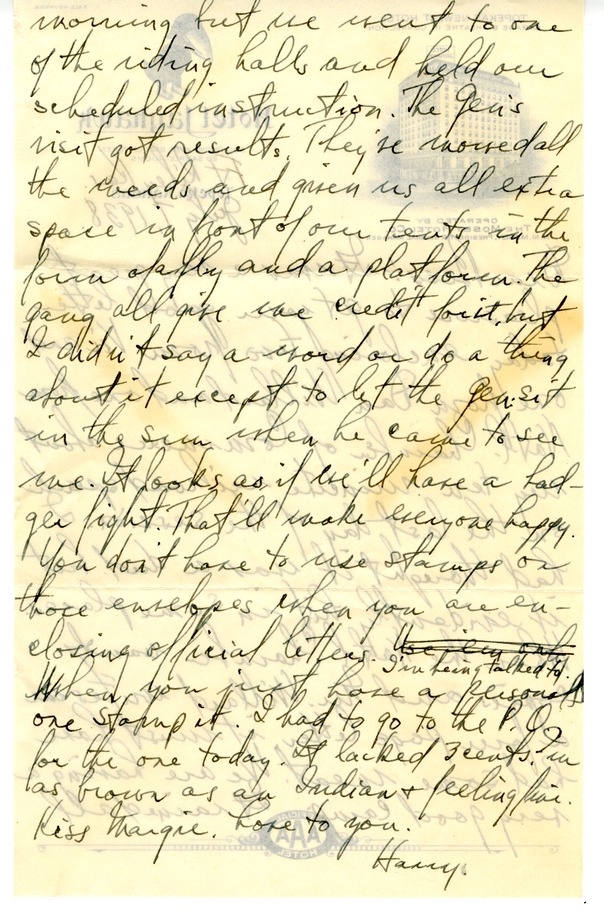 morning but we went to one
of the riding halls and held our
scheduled instruction. The Gen's
visit got results. They've mowed all
the weeds and given us all extra
space in front of our tents in the
form of a fly and a platform. The
gang all give me credit for it, but
I didn't say a word or do a thing
about it except to let the Gen. sit
in the sun when he came to see
me. It looks as if we'll have a bad-
ger fight. That'll make everyone happy.
You don't have to use stamps on
those envelopes when you are en-
closing official letters.
I'm being talked to.
When you just have a personal
one stamp it. I had to go to the P.O.
for the one today. It lacked 3 cents. I'm
as brown as an Indian & feeling fine.
Kiss Margie. Love to you.
Harry.